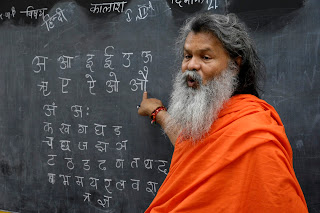 विषय हिन्दी कालाश
अ आ इ ई उ ऊ
ऋ ए ऐ ओ औ
अं अः
क ख ग घ ङ
च छ ज झ ञ
ट ठ ड ढ ण त थ द
ब भ म य र ल व श